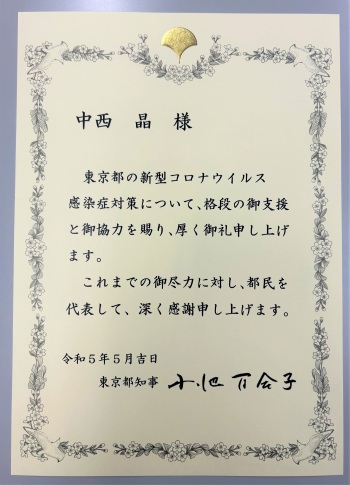 中西 晶 様
東京都の新型コロナウイルス
感染症対策について、格段の御支援
と御協力を賜り、厚く御礼申し上げ
ます。
これまでの御尽力に対し、都民を
代表して、深く感謝申し上げます。
令和5年5月吉日
東京都知事 小池百合子